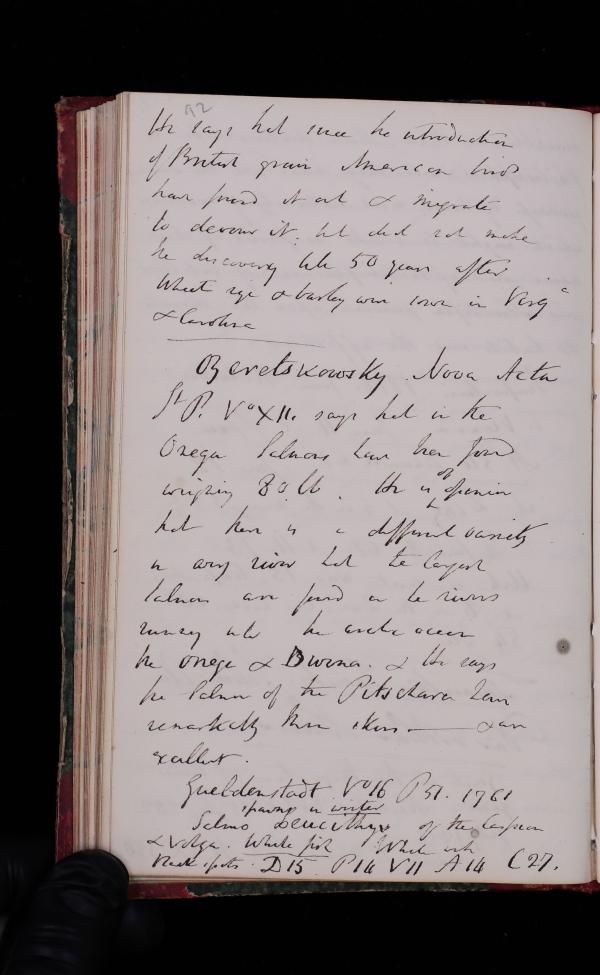 92
He says that since the introduction
of British grain American birds
have found it out & migrate
to devour it, but did not make
the discovery till 50 years after
Wheat rye & barley were sown in Virg^a
& Carolina
Ozeretskowsky. Nova Acta
St P. V^o XII. says that in the
Onega Salmons have been found
weighing 80 lb. He is of opinion
that there is a different variety
in every river but the largest
Salmon are found in the rivers
running into the arctic ocean
the Onega & Dwina. & He says
the Salmon of the Pitschara have
remarkably thin skins — & are
excellent.
Gueldenstadt V^o 16 P 51. 1761
spawns in winter
Salmo Leucithys of the Caspian
& Volga. White fish White with
black spots. D15 P14 V11 A14 C27.